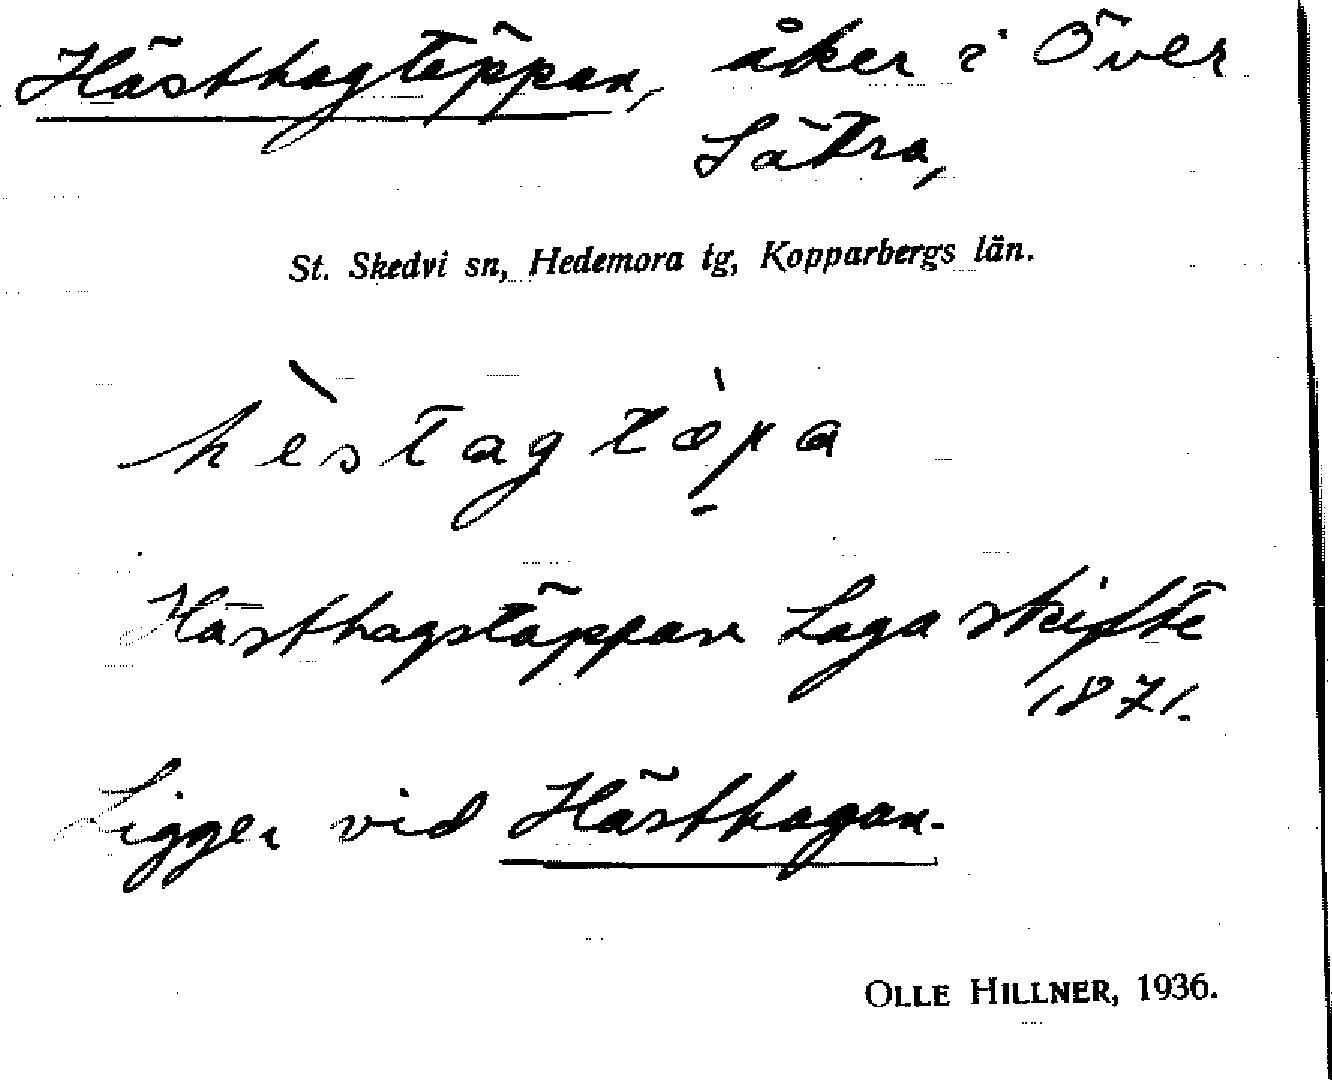 Hästhagtäppan, åker i Över
Sätra,
St. Skedvi sn, Hedemora tg, Kopparbergs län.
hèstagtæ̀p̠a
Hästhagstäppan Laga skifte
1871.
Ligger vid Hästhagan.
OLLE HILLNER, 1936.